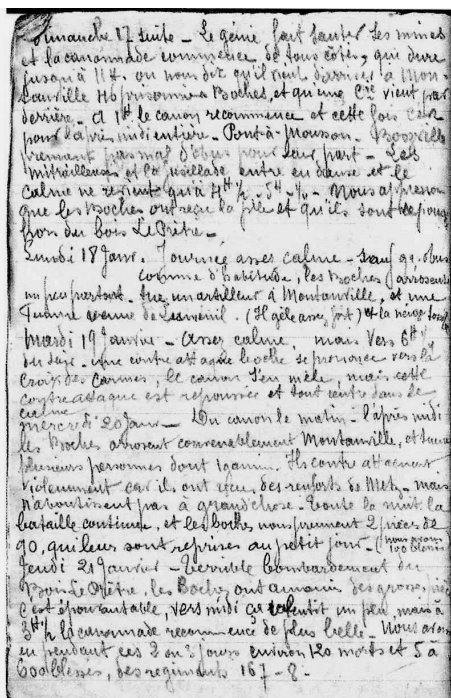 Dimanche 17 suite - Le génie fait sauter ses mines
et la canonnade commence de tous côtés, qui dure
jusqu'à 11H. on nous dit qu'il vient d'arriver à Mon-
tauville 40 prisonniers Boches, et qu'une Cie vient par
derrière. A 1H le canon recommence et cette fois c'est
pour l'après midi entière - Pont-à-Mousson -
prennent pas mal d'obus pour leur part - Les
mitrailleuses et la fusillade entre en danse et le
calme ne revient qu'à 4H ½ - 5H - Nous apprenons
que les Boches ont reçu la pile et qu'ils sont repous-
sés du bois Le Prêtre -
Lundi 18 Janv. Journée assez calme - Sauf qq. obus
comme d'habitude, les Boches arrosent
un peu partout. Tué un artilleur à Montauville, et une
femme avenue de (Il gèle assez fort) et la neige
Mardi 19 Janvier - Assez calme mais vers 6H
du soir - une contre attaque boche se prononce vers la
Croix des Carmes, le canon s'en mêle, mais cette
contre attaque est repoussée et tout rentre dans le
calme
Mercredi 20 Janv - Du canon le matin - l'après midi
les Boches arrosent convenablement Montauville, et tuent
plusieurs personnes dont 1 gamin. Ils contre attaquent
violemment car ils ont reçu, des renforts de Metz, mais
n'aboutissent pas à grand chose - toute la nuit la
bataille continue, et les boches nous prennent 2 pièces de
90, qui leur sont reprises au petit jour - (nous avons
100 blessés
Jeudi 21 Janvier - terrible bombardement du
Bois Le Prêtre, les Boches ont amené des grosses
c'est épouvantable, vers midi ça ralentit un peu, mais à
3H ½ la canonnade recommence de plus belle - Nous avons
eu pendant ces 2 ou 3 jours environ 120 morts et 5 à
600 blessés, des régiments 167 - 8 -